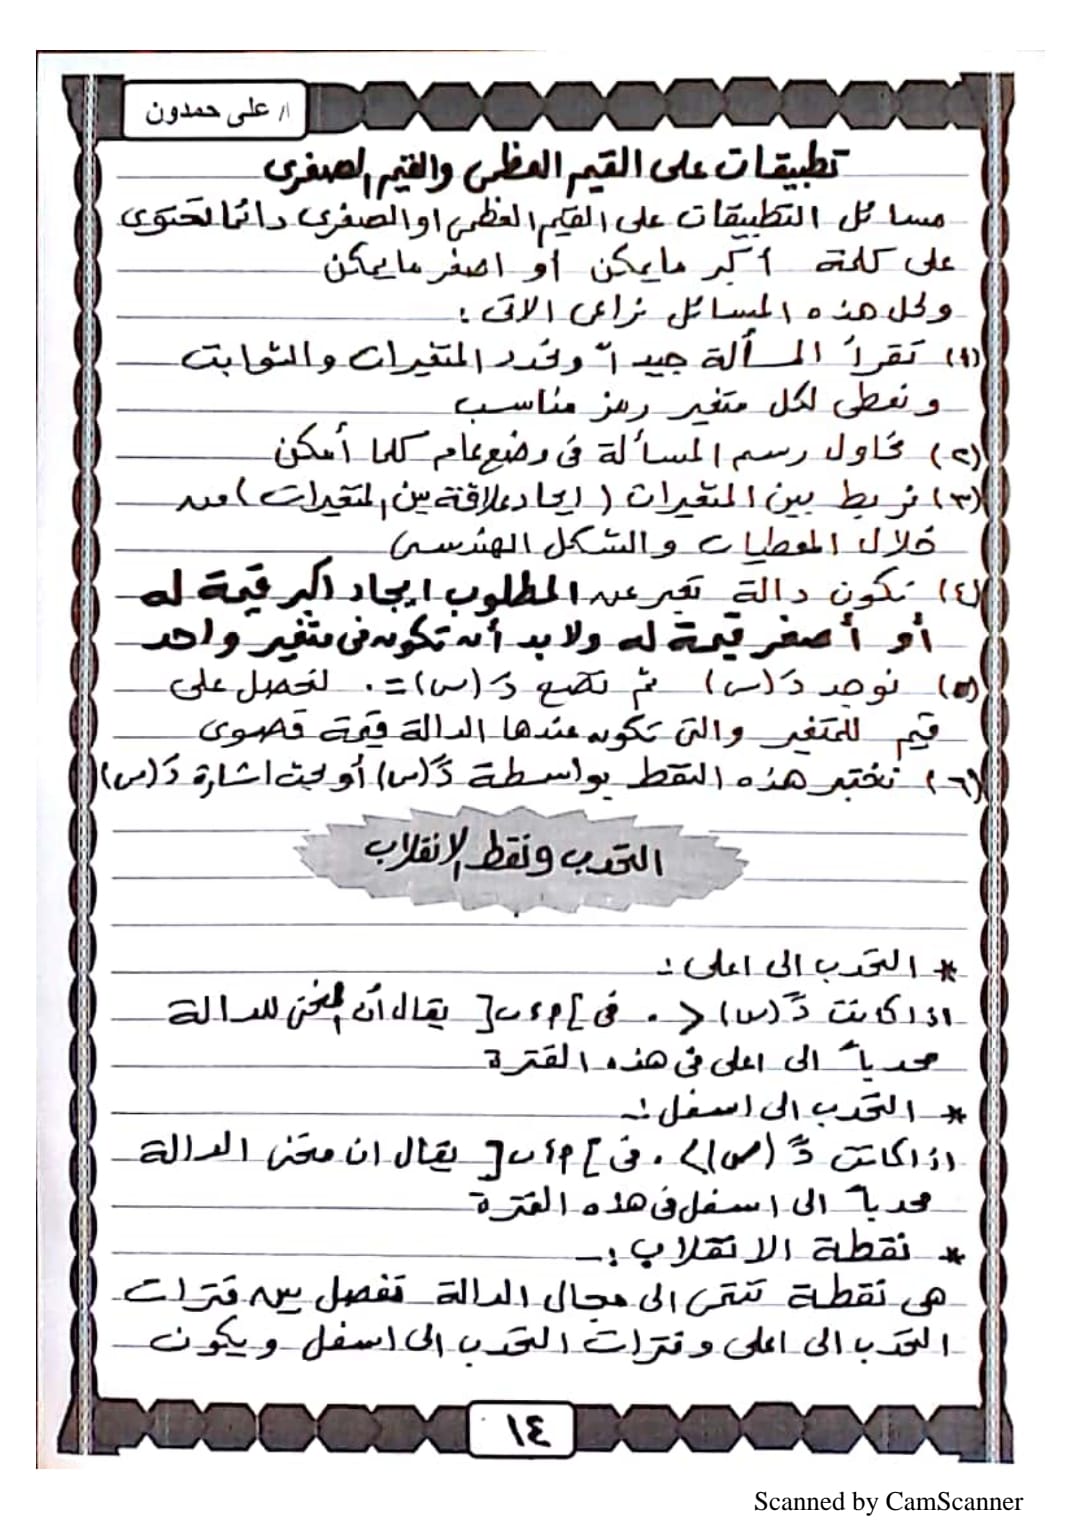 ا/ على حمدون
تطبيقات على القيم العظمى والقيم الصغرى
مسائل التطبيقات على القيم العظمى او الصغرى دائما تحتوى
على كلمة أكبر ما يمكن أو اصغر ما يمكن
ولحل هذه المسائل نراعى الاتى :
(١) نقرأ المسألة جيداً ونحدد المتغيرات والثوابت
ونعطى لكل متغير رمز مناسب
(٢) نحاول رسم المسألة فى وضع عام كلما أمكن
(٣) نربط بين المتغيرات (ايجاد علاقة بين المتغيرات) من
خلال المعطيات والشكل الهندسى
(٤) نكون دالة تعبر عن المطلوب ايجاد اكبر قيمة له
أو أصغر قيمة له ولابد أن تكون فى متغير واحد
(٥) نوجد دَ(س) ثم نضع دَ(س) = ٠ لنحصل على
قيم للمتغير والتى تكون عندها الدالة قيمة قصوى
(٦) نختبر هذه النقط بواسطة دً(س) أو بحث اشارة دَ(س)
التحدب ونقط الانقلاب
* التحدب الى اعلى :-
اذا كانت دً(س) < ٠ فى ]م ، ب[ يقال أن المنحنى للدالة
محدباً الى اعلى فى هذه الفترة
* التحدب الى اسفل :-
اذا كانت دً(س) > ٠ فى ]م ، ب[ يقال ان منحنى الدالة
محدباً الى اسفل فى هذه الفترة
* نقطة الانقلاب :-
هى نقطة تنتمى الى مجال الدالة تفصل بين فترات
التحدب الى اعلى وفترات التحدب الى اسفل ويكون
١٤
Scanned by CamScanner